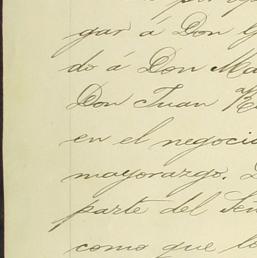 gar á Don
do á Don Ma
Don Juan
en el negocia
mayorazgo.
parte del Señ
como que lo